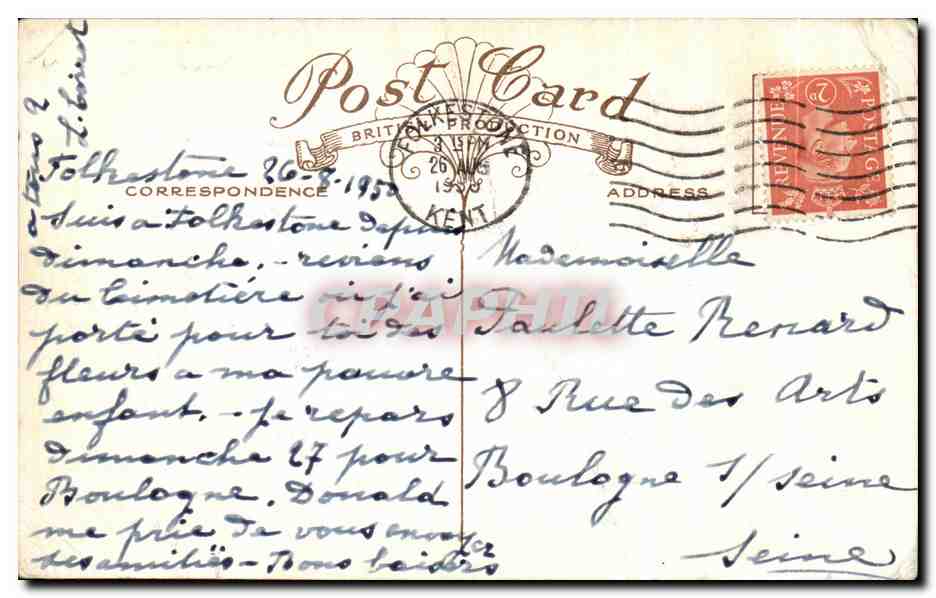 Post Card
BRITISH PRODUCTION
CORRESPONDENCE
ADDRESS
FOLKESTONE
26 AUG
KENT
POSTAGE
REVENUE
Folkestone 26-8-1950
Suis a Folkestone depuis
dimanche, - reviens
du Cimetière où j'ai
porté pour toi des
fleurs a ma pauvre
enfant. - Je repars
dimanche 27 pour
Boulogne. Donald
me prie de vous envoyer
des amitiés - Bons baisers
a tous 2
Mademoiselle
Paulette Renard
8 Rue des Arts
Boulogne s/ seine
Seine
CPAPHIL